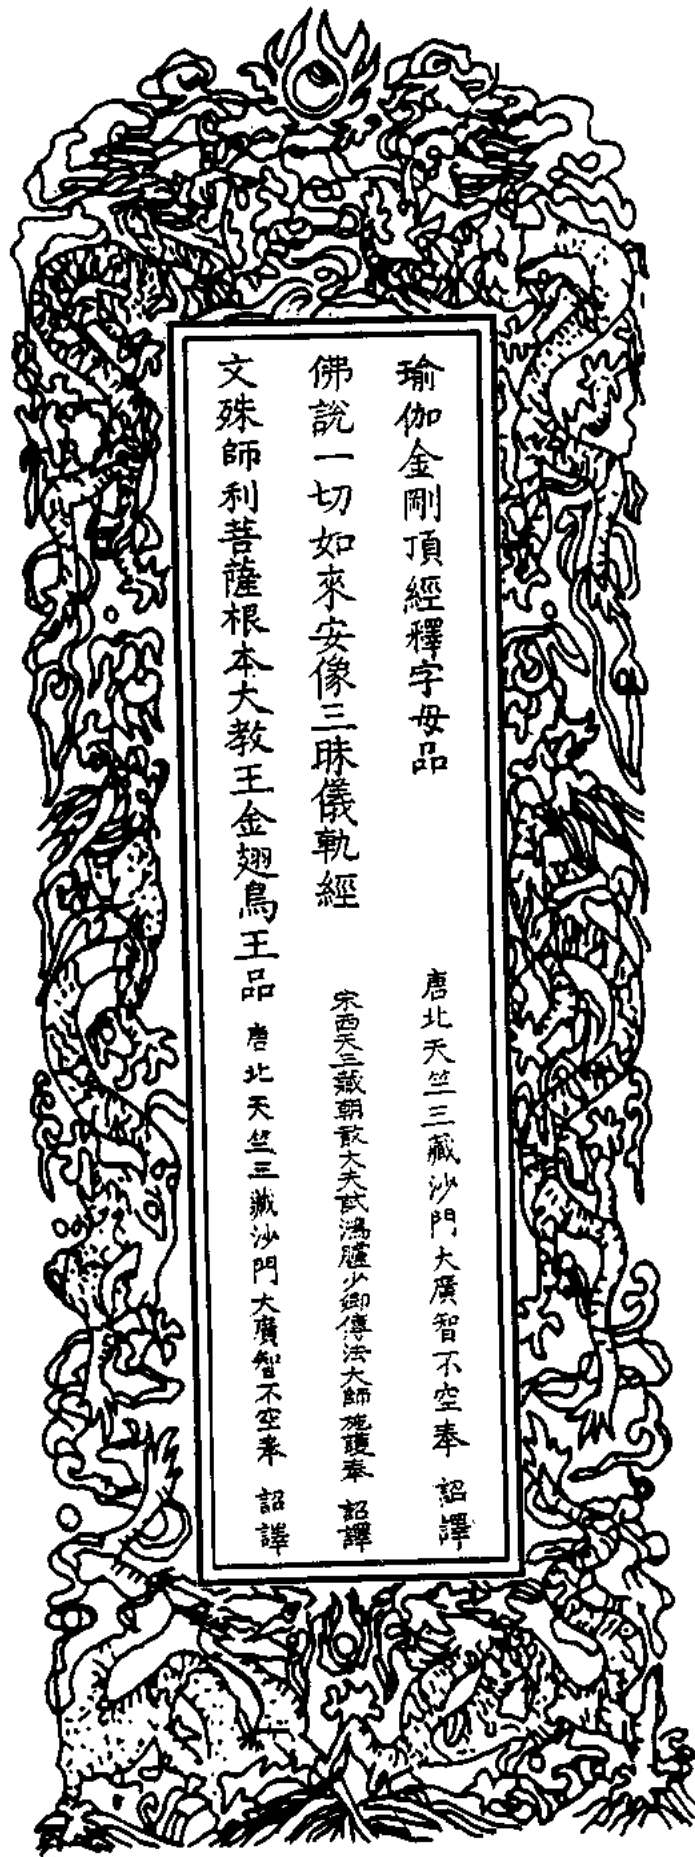 瑜伽金剛頂經釋字母品 唐北天竺三藏沙門大廣智不空奉 詔譯
佛說一切如來安像三昧儀軌經 宋西天三藏朝散大夫試鴻臚少卿傳法大師施護奉 詔譯
文殊師利菩薩根本大教王金翅鳥王品 唐北天竺三藏沙門大廣智不空奉 詔譯